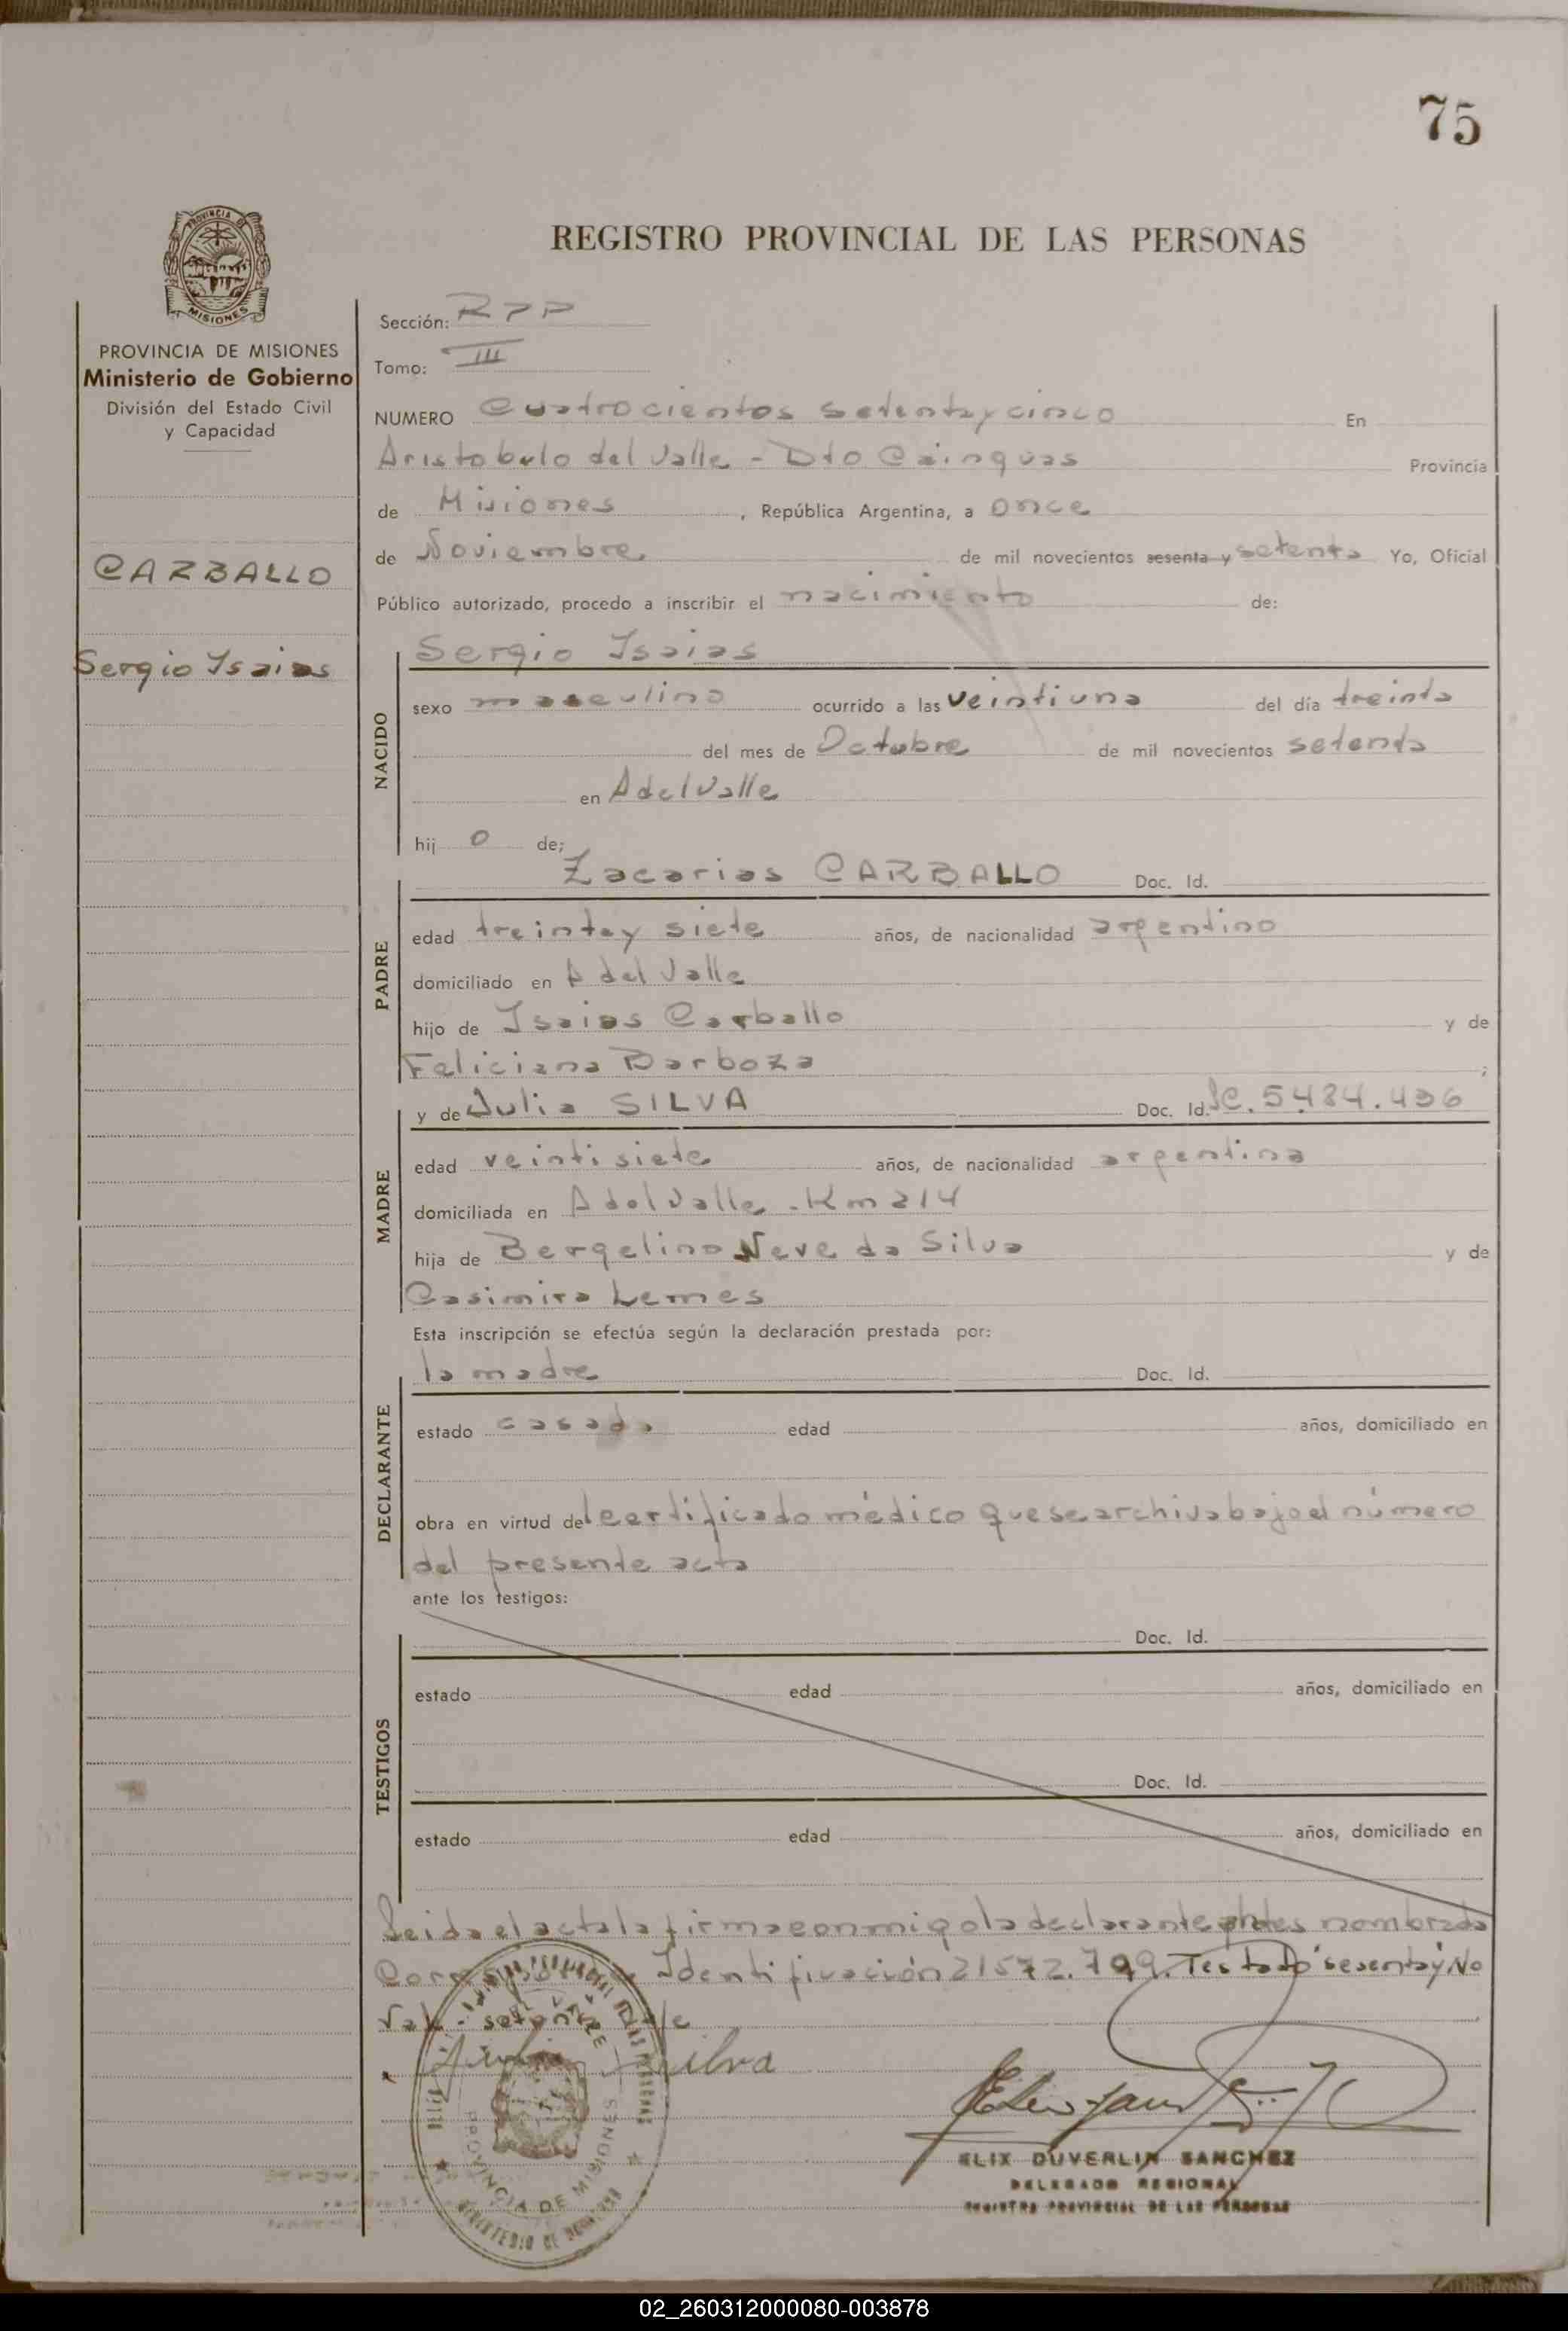 75
REGISTRO PROVINCIAL DE LAS PERSONAS
PROVINCIA DE
MISIONES
PROVINCIA DE MISIONES
Ministerio de Gobierno
División del Estado Civil
y Capacidad
CARBALLO
Sergio Isaias
Sección: RPP
Tomo: III
NUMERO Cuatrocientos setenta y cinco En
Aristobulo del Valle - Dto Cainguas Provincia
de Misiones, República Argentina, a once
de Noviembre de mil novecientos sesenta y setenta Yo, Oficial
Público autorizado, procedo a inscribir el nacimiento de:
NACIDO
Sergio Isaias
sexo masculino ocurrido a las veintiuna del día treinta
del mes de Octubre de mil novecientos setenta
en A del Valle
hij o de;
PADRE
Zacarias CARBALLO Doc. Id.
edad treinta y siete años, de nacionalidad argentino
domiciliado en A del Valle
hijo de Isaias Carballo y de
Feliciana Barboza ;
MADRE
y de Julia SILVA Doc. Id. 5.484.436
edad veintisiete años, de nacionalidad argentina
domiciliada en A del Valle - Km 214
hija de Bergelino Neve da Silva y de
Casimira Lemes
Esta inscripción se efectúa según la declaración prestada por:
DECLARANTE
la madre Doc. Id.
estado casada edad años, domiciliado en
obra en virtud del certificado médico que se archiva bajo el número
del presente acta
ante los testigos:
TESTIGOS
Doc. Id.
estado edad años, domiciliado en
Doc. Id.
estado edad años, domiciliado en
Leida el acta la firma conmigo la declarante antes nombrada
Identificación 21572.799. Testado "sesenta y" No
Vale - setenta Vale
Silva
PROVINCIA DE MISIONES
ELIX DUVERLIN SANCHEZ
DELEGADO REGIONAL
REGISTRO PROVINCIAL DE LAS PERSONAS
02_260312000080-003878